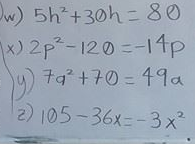 w) 5h²+30h=80
x) 2p²-120=-14p
y) 7a²+70=49a
z) 105-36x=-3x²